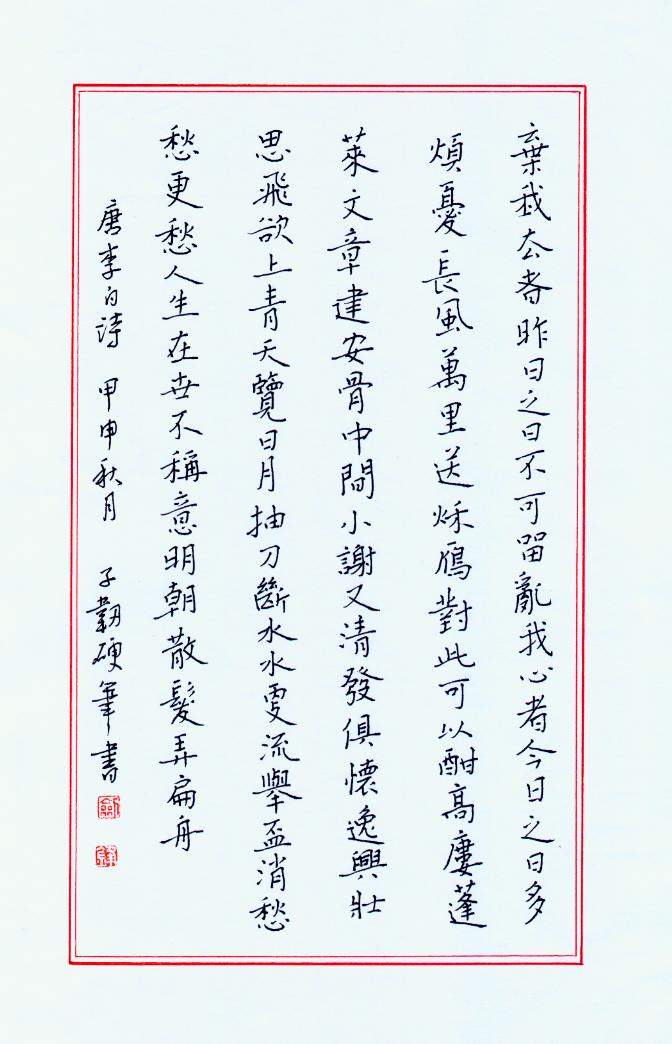 棄我去者昨日之日不可留亂我心者今日之日多
煩憂長風萬里送秌鴈對此可以酣高廔蓬
萊文章建安骨中間小謝又清發俱懷逸興壯
思飛欲上青天覽日月抽刀斷水水更流舉盃消愁
愁更愁人生在世不稱意明朝散髮弄扁舟
唐李白詩 甲申秋月 子韌硬筆書